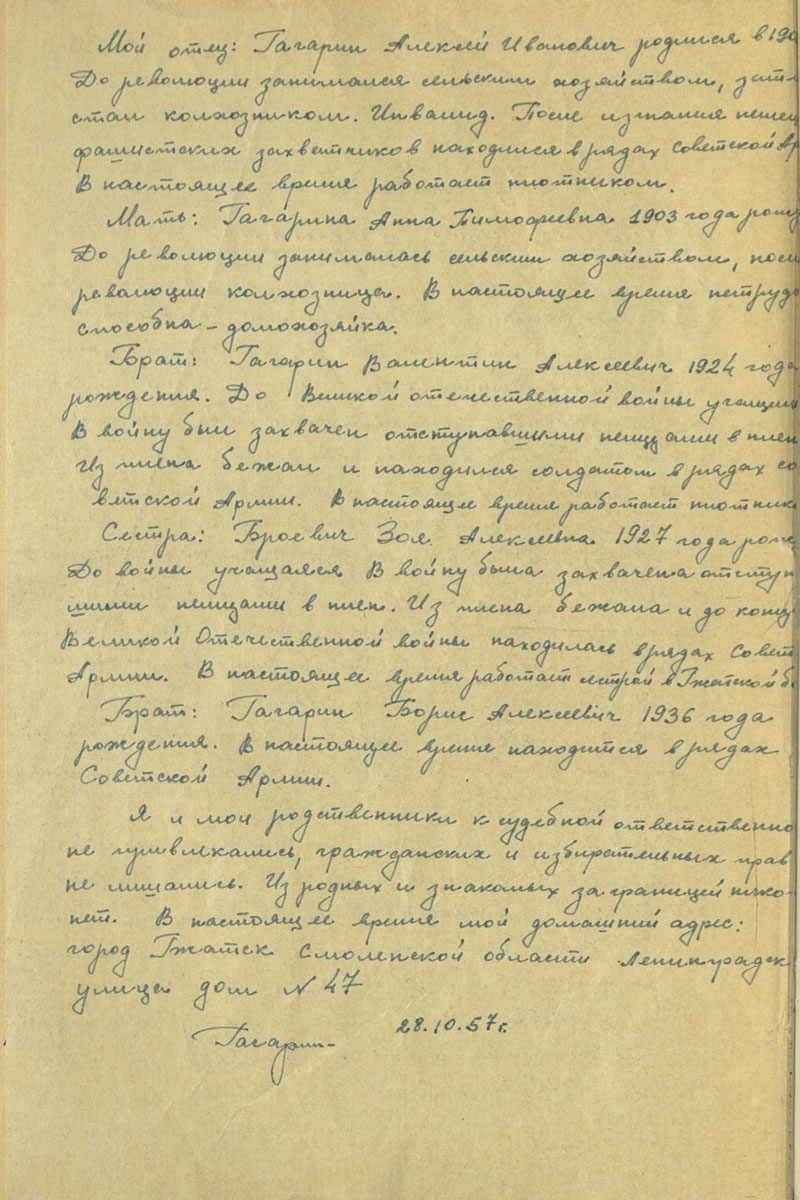 Мой отец: Гагарин Алексей Иванович родился в 190
До революции занимался сельским хозяйством, зат
стал колхозником. Инвалид. После изгнания немец
фашистских захветчиков находился в рядах Советской Ар
В настоящее время работает плотником.
Мать: Гагарина Анна Тимофеевна 1903 года рожд
До революции занималась сельским хозяйством, посл
революции колхозница. В настоящее время нетрудо
способна – домохозяйка.
Брат: Гагарин Валентин Алексеевич 1924 года
рождения. До Великой отечественной войны учащий
В войну был захвачен отступавшими немцами в плен
Из плена бежал и находился солдатом в рядах со
ветской Армии. В настоящее время работает плотник
Сестра: Броевич Зоя Алексеевна 1927 года рожд
До войны учащаяся. В войну была захвачена отступ
шими немцами в плен. Из плена бежала и до конца
Великой Отечественной войны находилась в рядах Совет
Армии. В настоящее время работает сестрой в Гжатской б
Брат: Гагарин Борис Алексеевич 1936 года
рождения. В настоящее время находится в рядах
Советской Армии.
Я и мои родственники к судебной ответственно
не привлекались, гражданских и избирательных прав
не лишались. Из родных и знакомых за границей нико
нет. В настоящее время мой домашний адрес:
город Гжатск Смоленской области Ленинградск
улица дом N 47
28.10.57г.
Гагарин